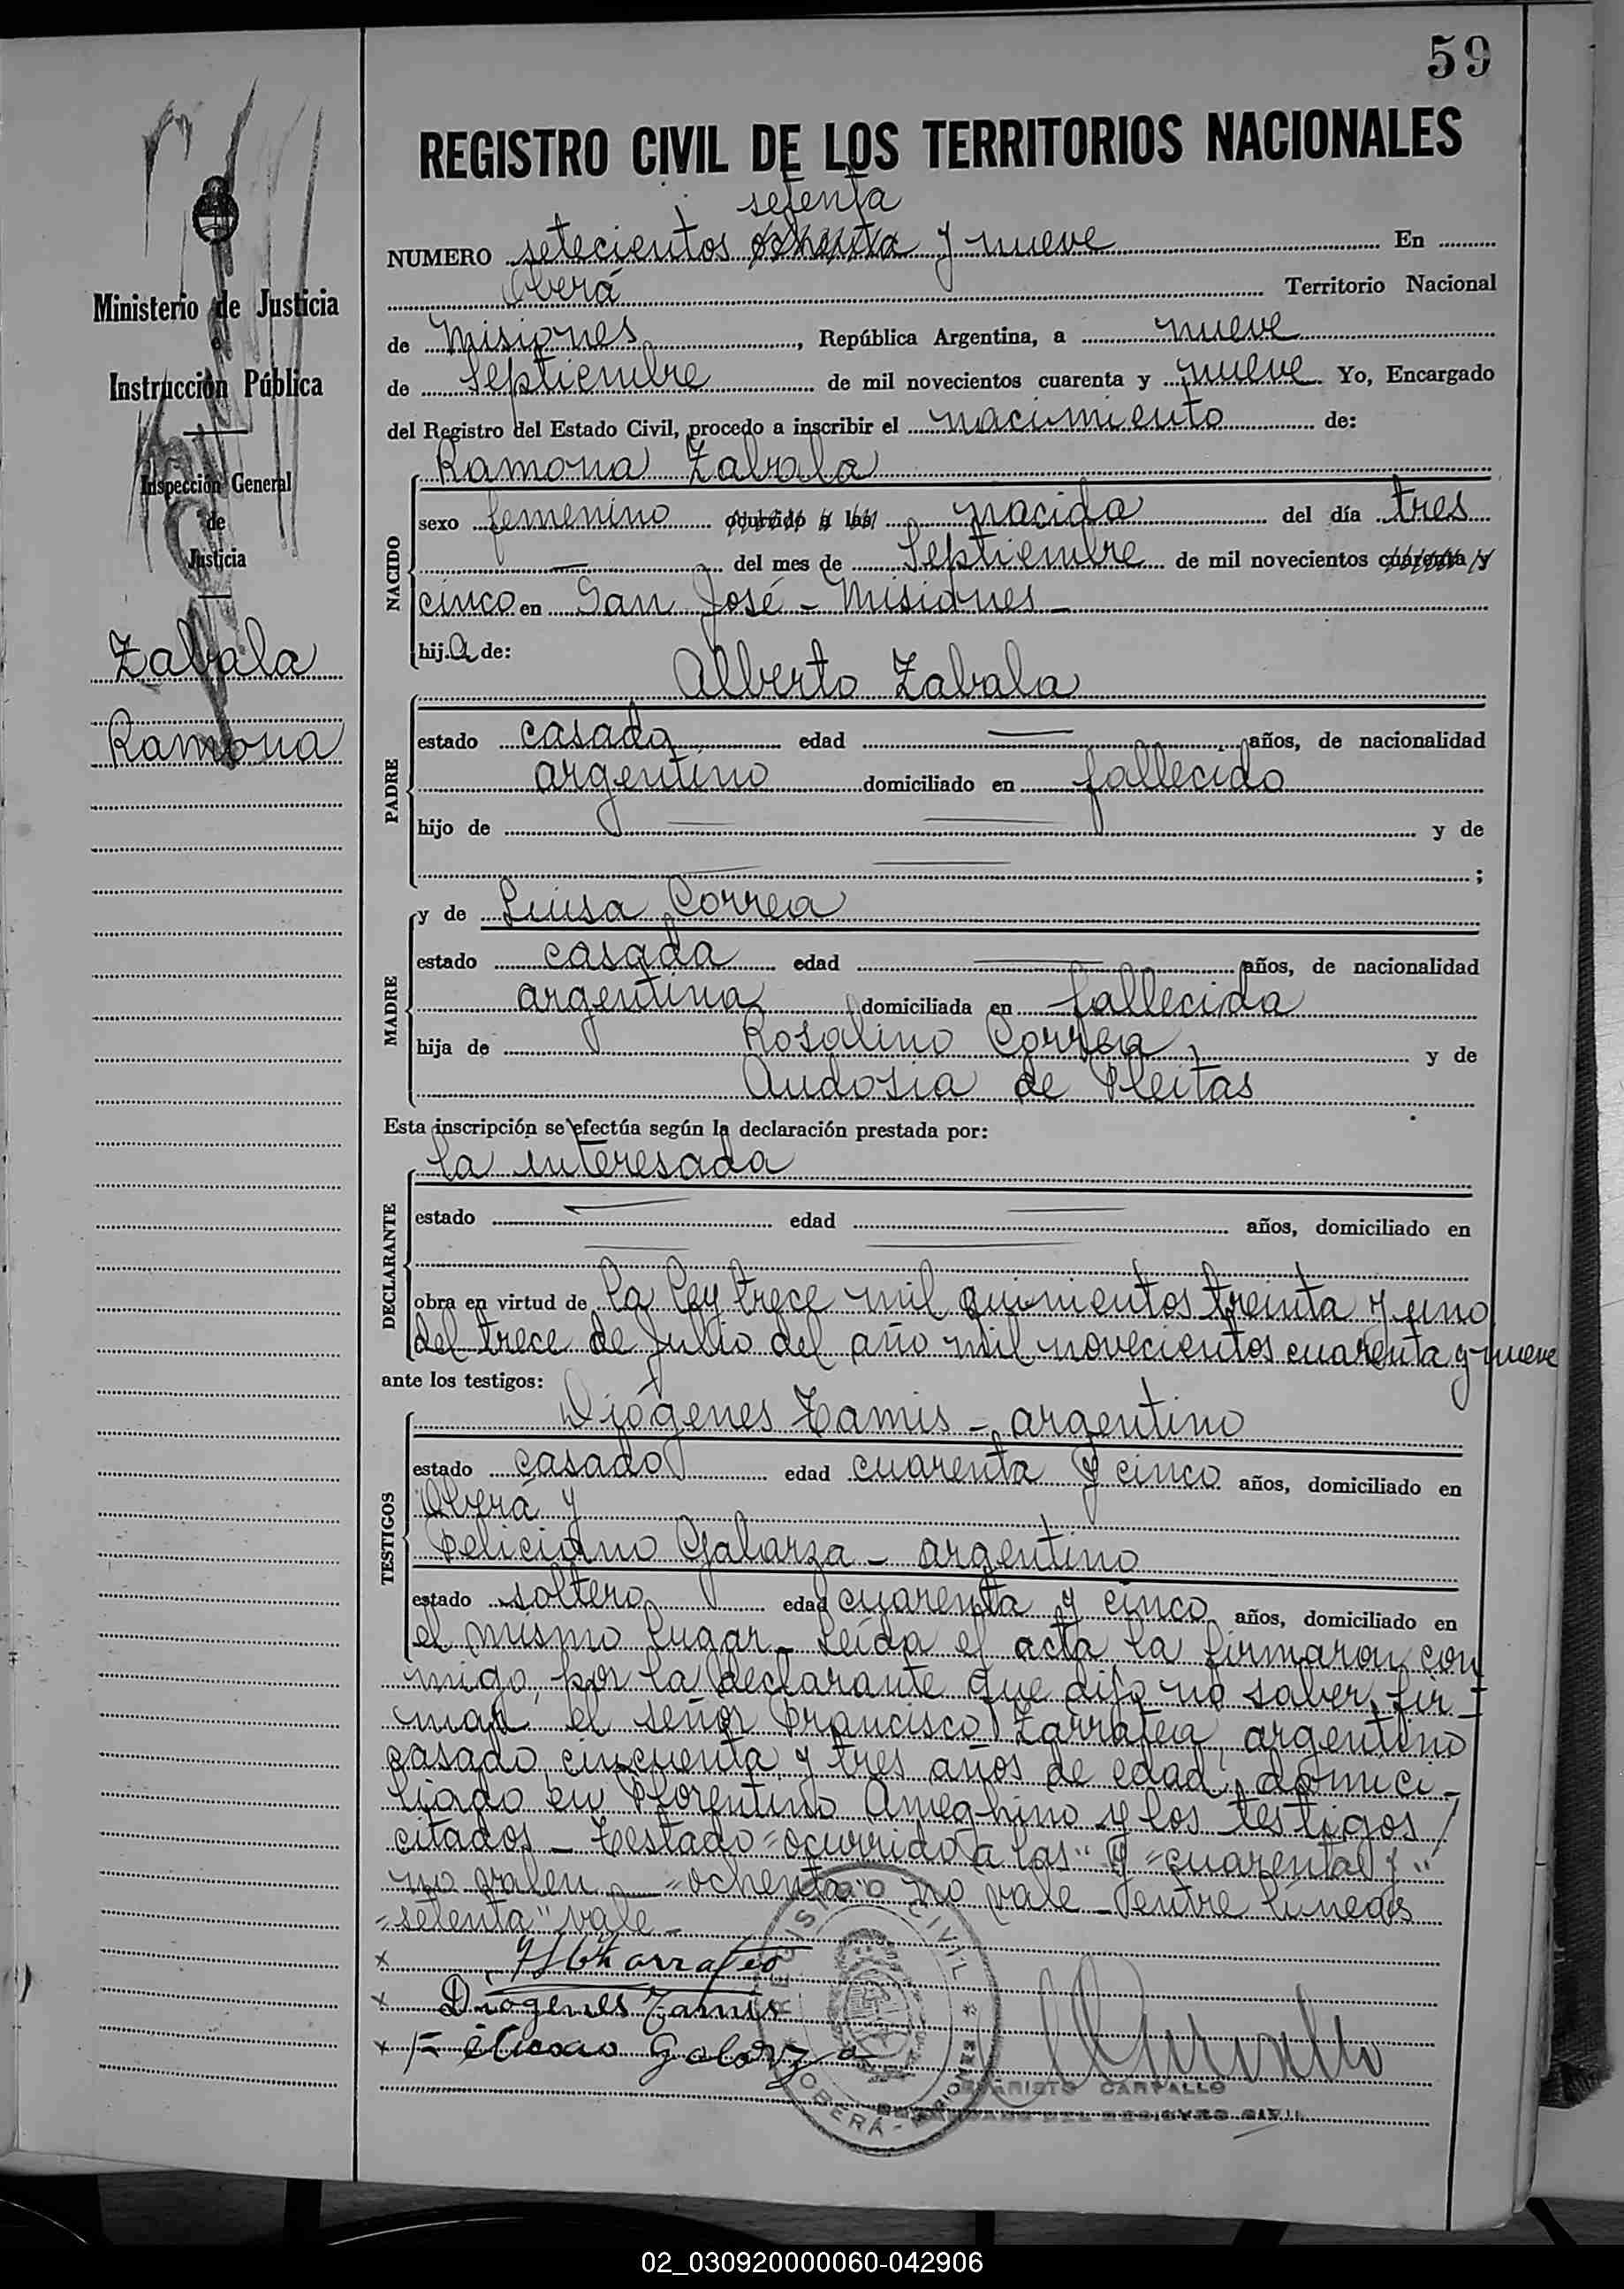 59
REGISTRO CIVIL DE LOS TERRITORIOS NACIONALES
setenta
NUMERO setecientos ochenta y nueve En
Oberá Territorio Nacional
de Misiones, República Argentina, a nueve
de Septiembre de mil novecientos cuarenta y nueve. Yo, Encargado
del Registro del Estado Civil, procedo a inscribir el nacimiento de:
Ramona Zabala
NACIDO
sexo femenino ocurrido a las nacida del día tres
del mes de Septiembre de mil novecientos cuarenta y
cinco en San José - Misiones -
hija de:
PADRE
Alberto Zabala
estado casado edad años, de nacionalidad
argentino domiciliado en fallecido
hijo de y de
;
MADRE
y de Luisa Correa
estado casada edad años, de nacionalidad
argentina domiciliada en fallecida
hija de Rosalino Correa y de
Audosia de Fleitas
Esta inscripción se efectúa según la declaración prestada por:
DECLARANTE
la interesada
estado edad años, domiciliado en
obra en virtud de la ley trece mil quinientos treinta y uno
del trece de Julio del año mil novecientos cuarenta y nueve
ante los testigos:
TESTIGOS
Diógenes Tamis - argentino
estado casado edad cuarenta y cinco años, domiciliado en
Oberá y
Feliciano Galarza - argentino
estado soltero edad cuarenta y cinco años, domiciliado en
el mismo lugar - Leída el acta la firmaron con
migo, por la declarante que dijo no saber fir-
mar el señor Francisco Zarratea, argentino
casado, cincuenta y tres años de edad, domici-
liado en Florentino Ameghino y los testigos
citados - Testado = ocurrido a las" y = cuarenta y"
no valen - "ochenta" no vale - entre líneas
=setenta" vale -
x
x Diogenes Tamis
x Feliciano Galarza
REGISTRO CIVIL
OBERÁ - MISIONES
CARVALLO
ENCARGADO DEL REGISTRO CIVIL
Ministerio de Justicia
e
Instrucción Pública
Inspección General
de
Justicia
Zabala
Ramona
02_030920000060-042906